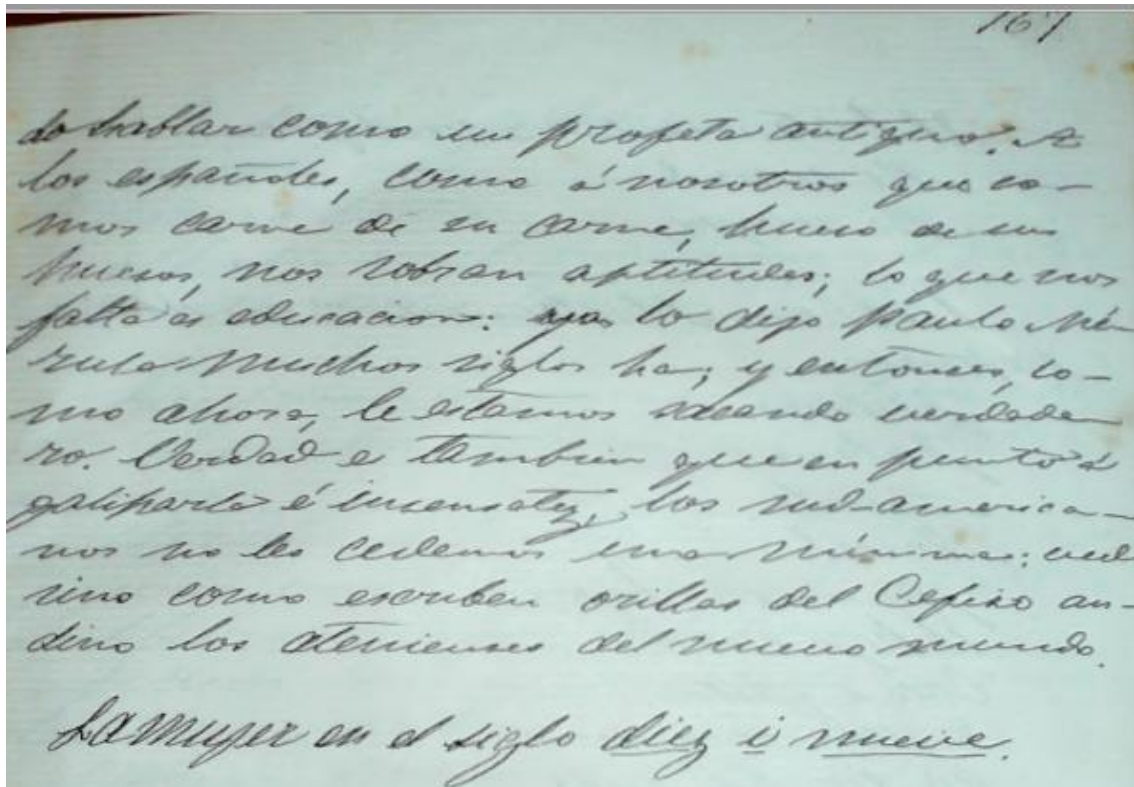 167
do hablar como un profeta antiguo. A
los españoles, como á nosotros que so-
mos carne de su carne, hueso de sus
huesos, nos sobran aptitudes; lo que nos
falta es educacion: ya lo dijo Paulo Mé-
rula muchos siglos ha; y entonces, co-
mo ahora, le estamos sacando verdade
ro. Verdad e tambien que en punto á
galiparla é insensatez, los sud-america-
nos no les cedemos una mínima: ved
sino como escriben orillas del Cefiso an-
dino los atenienses del nuevo mundo.
La mujer en el siglo diez i nueve.